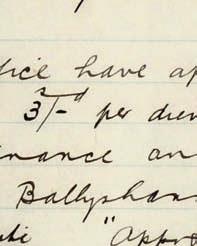 fice have ap
3/- per diem
inance an
Ballyshan
"Appro